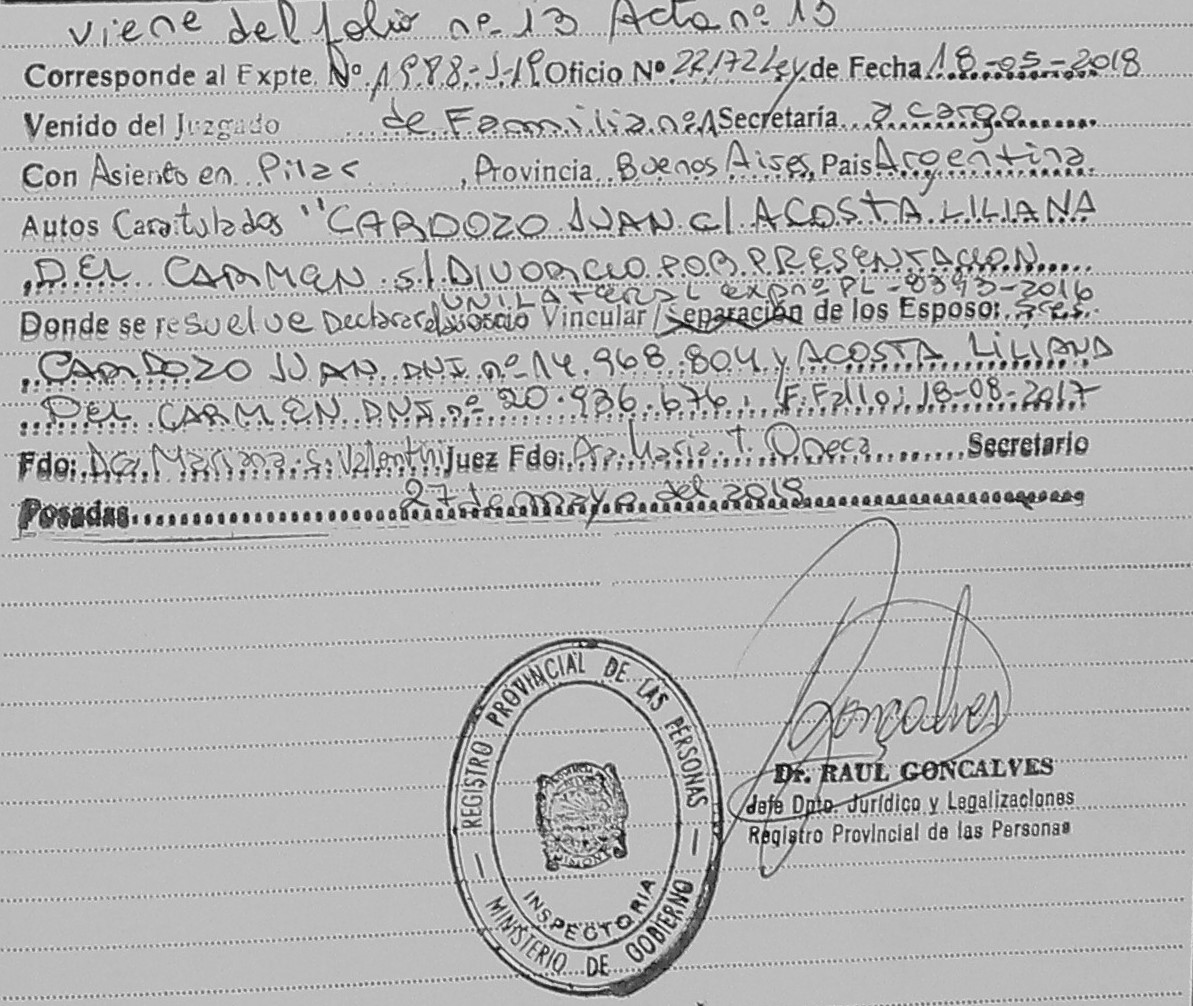 viene del folio nº 13 Acta nº 13
Corresponde al Expte. Nº 1988-J-19 Oficio Nº 22172 Ley de Fecha 18-05-2018
Venido del Juzgado de Familia nº 1 Secretaría a cargo
Con Asiento en Pilar, Provincia Buenos Aires, Pais Argentina.
Autos Caratulados "CARDOZO JUAN C/ ACOSTA LILIANA
DEL CARMEN s/ DIVORCIO POR PRESENTACION
UNILATERAL expnº PL-8393-2016
Donde se resuelve Declarar el divorcio Vincular / Separación de los Esposos: Sres.
CARDOZO JUAN DNI nº 14.968.804 y ACOSTA LILIANA
DEL CARMEN DNI nº 20.936.676. F. Fallo: 18-08-2017
Fdo: Dra. Mariana S. Valenthi Juez Fdo: Dra. Maria T. Secretario
Posadas 27 de mayo del 2019
REGISTRO PROVINCIAL DE LAS PERSONAS
INSPECTORIA
MINISTERIO DE GOBIERNO
Goncalves
Dr. RAUL GONCALVES
Jefe Dpto. Jurídico y Legalizaciones
Registro Provincial de las Personas